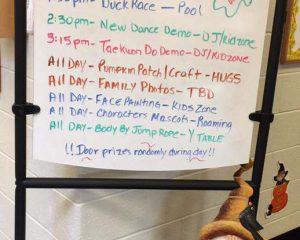 Duck Race - Pool
2:30pm - New Dance Demo - DJ/Kidzone
3:15pm - Taekwon Do Demo - DJ/Kidzone
All Day - Pumpkin Patch/Craft - HUGS
All Day - Family Photos - TBD
All Day - Face Painting - Kids Zone
All Day - Characters Mascots - Roaming
All Day - Body By Jump Rope - Y Table
!! Door prizes randomly during day!!